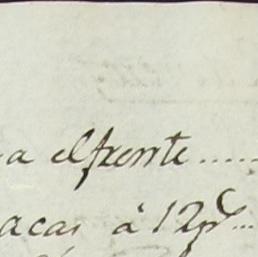 a el frente......
acas à 12 p^s...